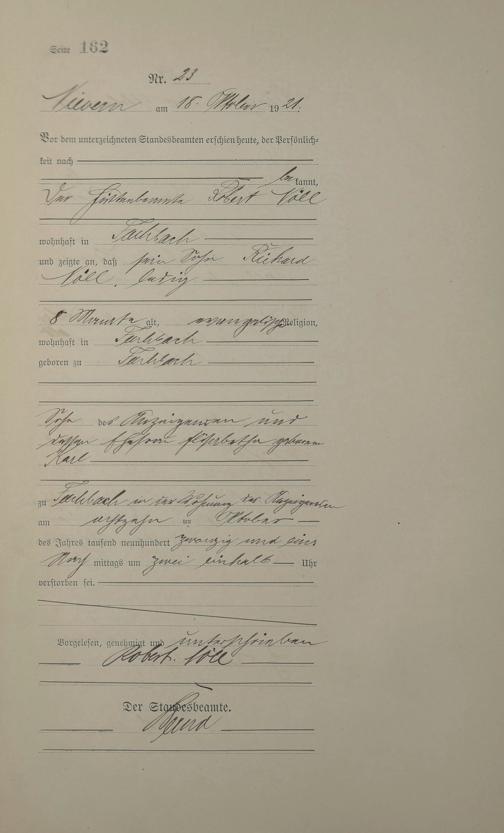 Seite 162
Nr. 23
Nievern am 18. Oktober 1921.
Vor dem unterzeichneten Standesbeamten erschien heute, der Persönlich-
keit nach
bekannt,
Der Hüttenbeamte Robert Nöll
wohnhaft in Fachbach
und zeigte an, daß sein Sohn Richard
Nöll, ledig
8 Monate alt, evangelischer Religion,
wohnhaft in Fachbach
geboren zu Fachbach
Sohn des Anzeigenden und
dessen Ehefrau Elisabetha geborenen
Karl
zu Fachbach in der Wohnung des Anzeigenden
am achtzehn ten Oktober
des Jahres tausend neunhundert zwanzig und eins
Nach mittags um zwei einhalb Uhr
verstorben sei.
Vorgelesen, genehmigt und unterschrieben
Robert Nöll
Der Standesbeamte.